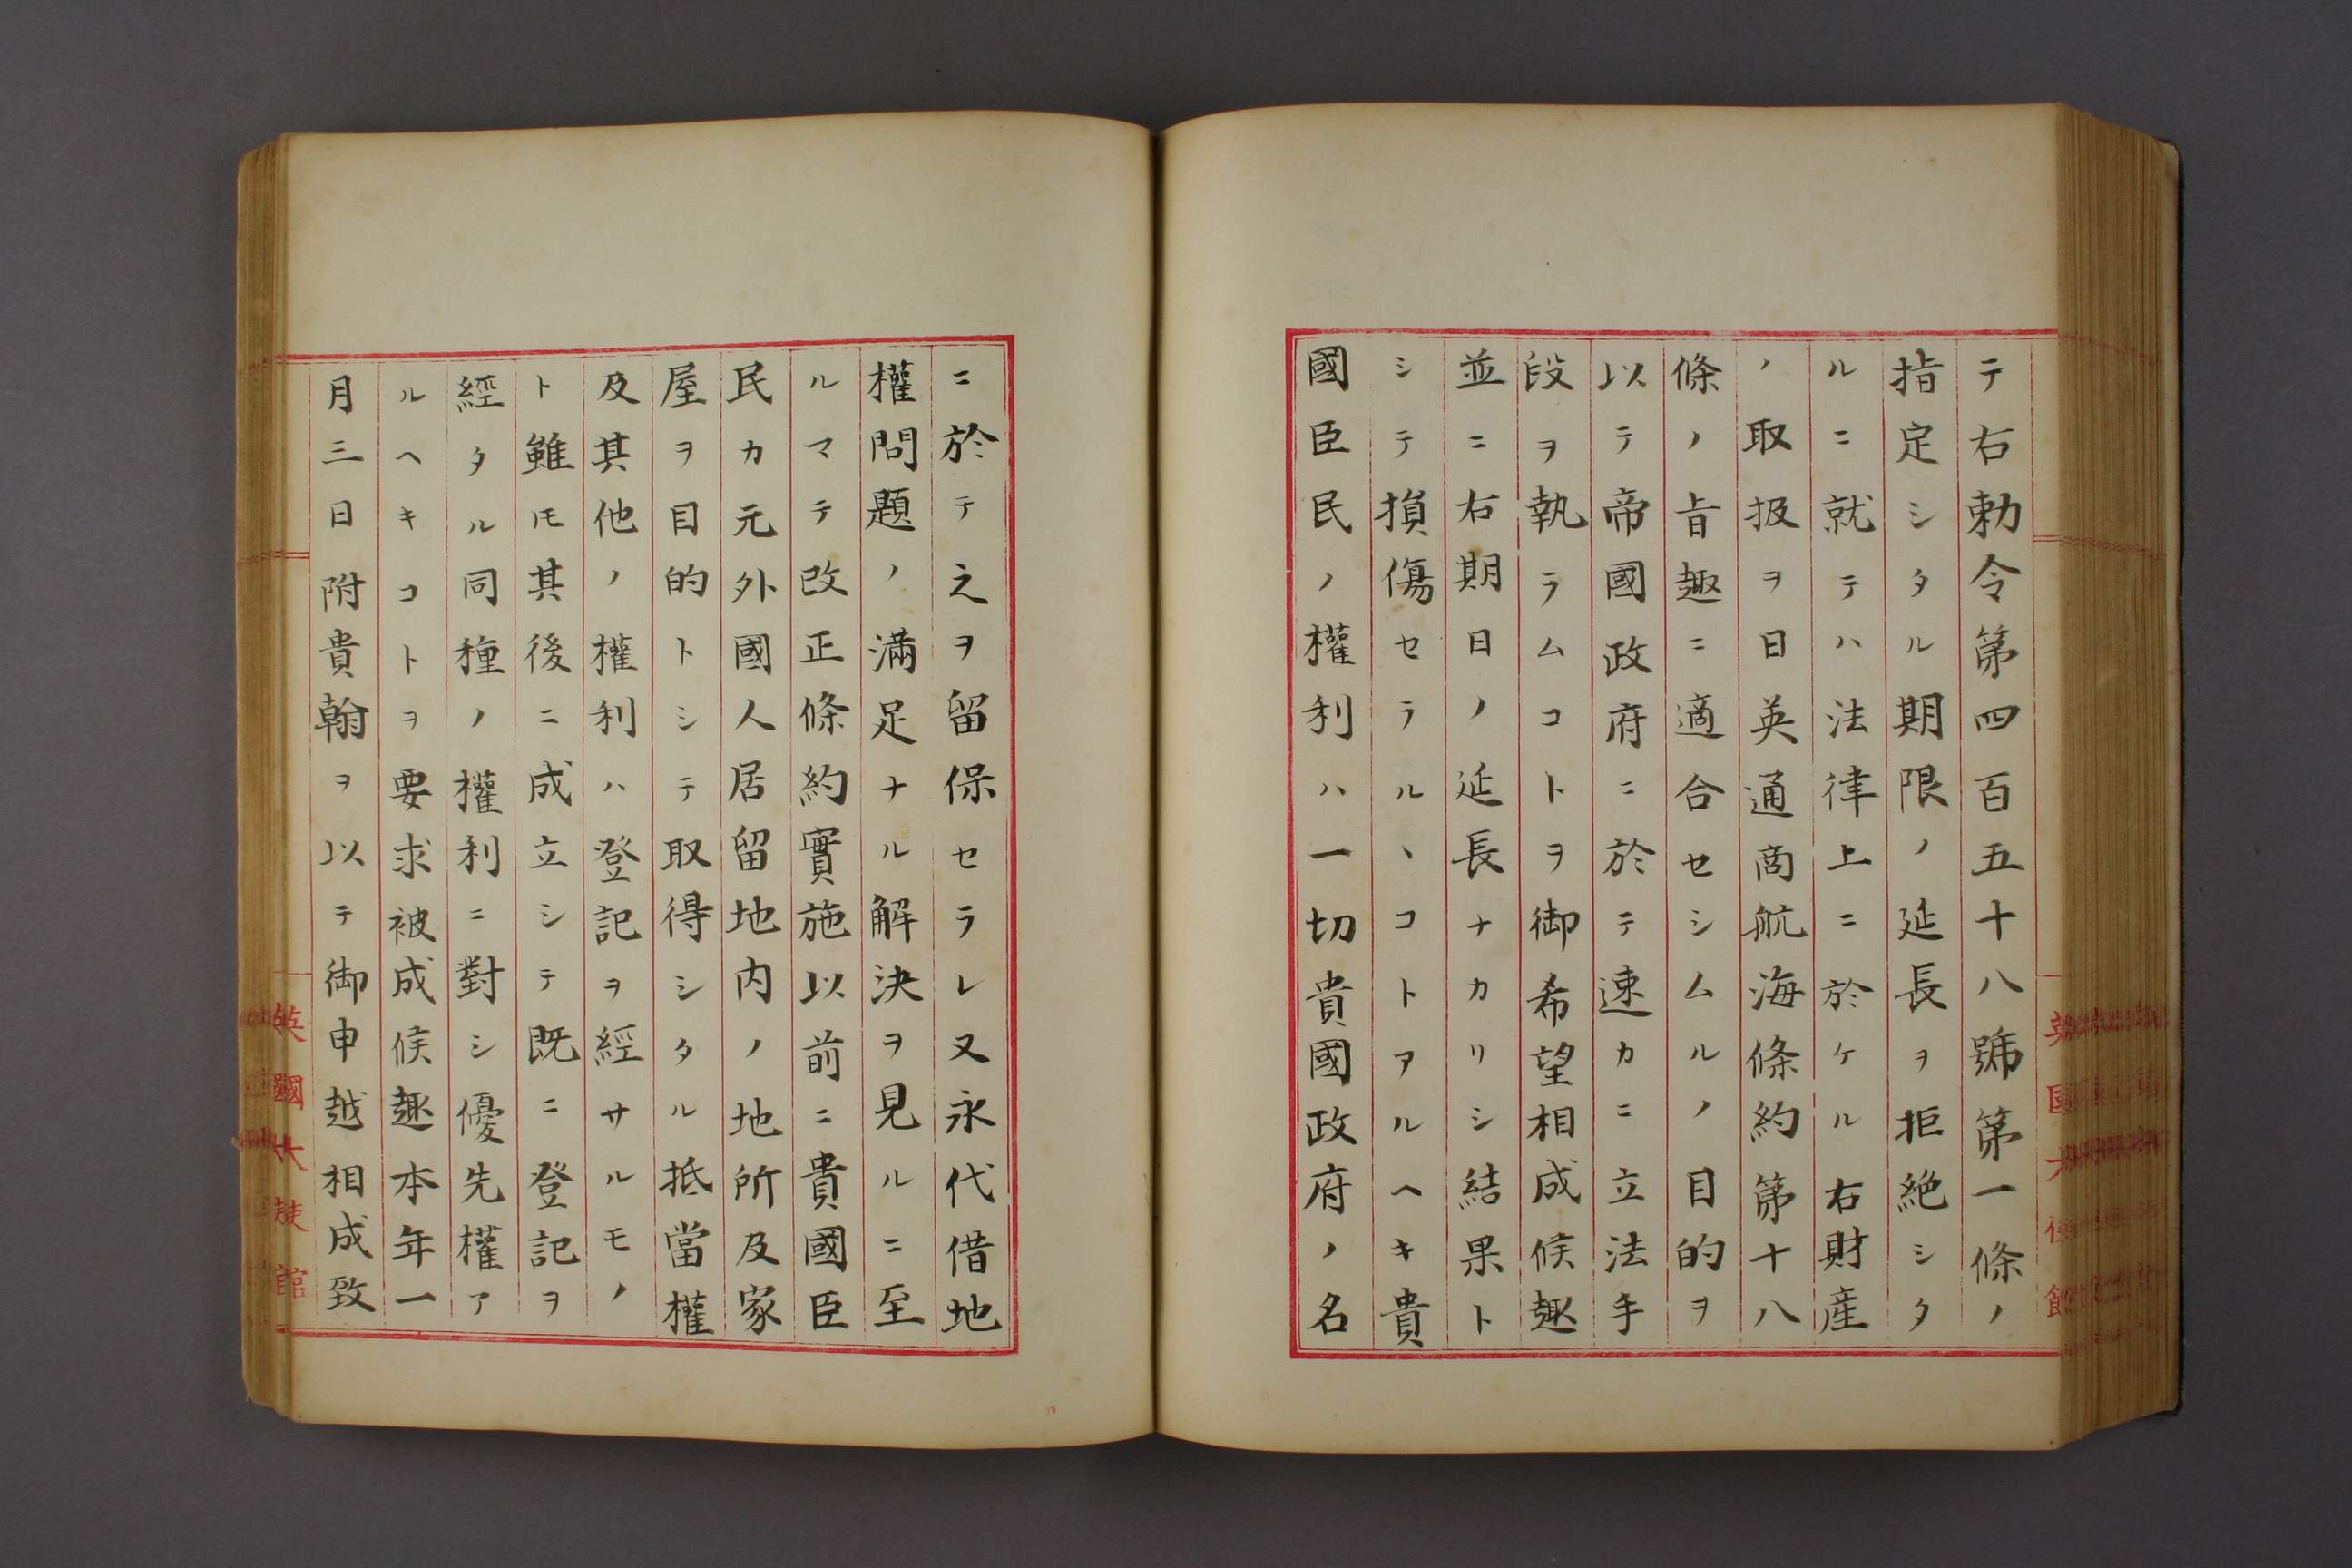 テ右勅令第四百五十八號第一條ノ
指定シタル期限ノ延長ヲ拒絶シタ
ルニ就テハ法律上ニ於ケル右財産
ノ取扱ヲ日英通商航海條約第十八
條ノ旨趣ニ適合セシムルノ目的ヲ
以テ帝國政府ニ於テ速カニ立法手
段ヲ執ラムコトヲ御希望相成候趣
並ニ右期日ノ延長ナカリシ結果ト
シテ損傷セラルヽコトアルヘキ貴
國臣民ノ權利ハ一切貴國政府ノ名
ニ於テ之ヲ留保セラレ又永代借地
權問題ノ滿足ナル解決ヲ見ルニ至
ルマテ改正條約實施以前ニ貴國臣
民カ元外國人居留地内ノ地所及家
屋ヲ目的トシテ取得シタル抵當權
及其他ノ權利ハ登記ヲ經サルモノ
ト雖モ其後ニ成立シテ既ニ登記ヲ
經タル同種ノ權利ニ對シ優先權ア
ルヘキコトヲ要求被成候趣本年一
月三日附貴翰ヲ以テ御申越相成致
英國大使館